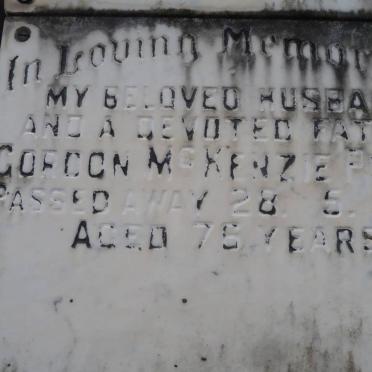 In Loving Memor
MY BELOVED HUSBA
AND A DEVOTED FAT
GORDON McKENZIE P
PASSED AWAY 28. 5.
AGED 76 YEARS